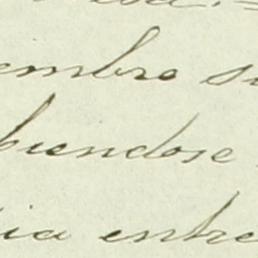 embre
biendose
ia entre